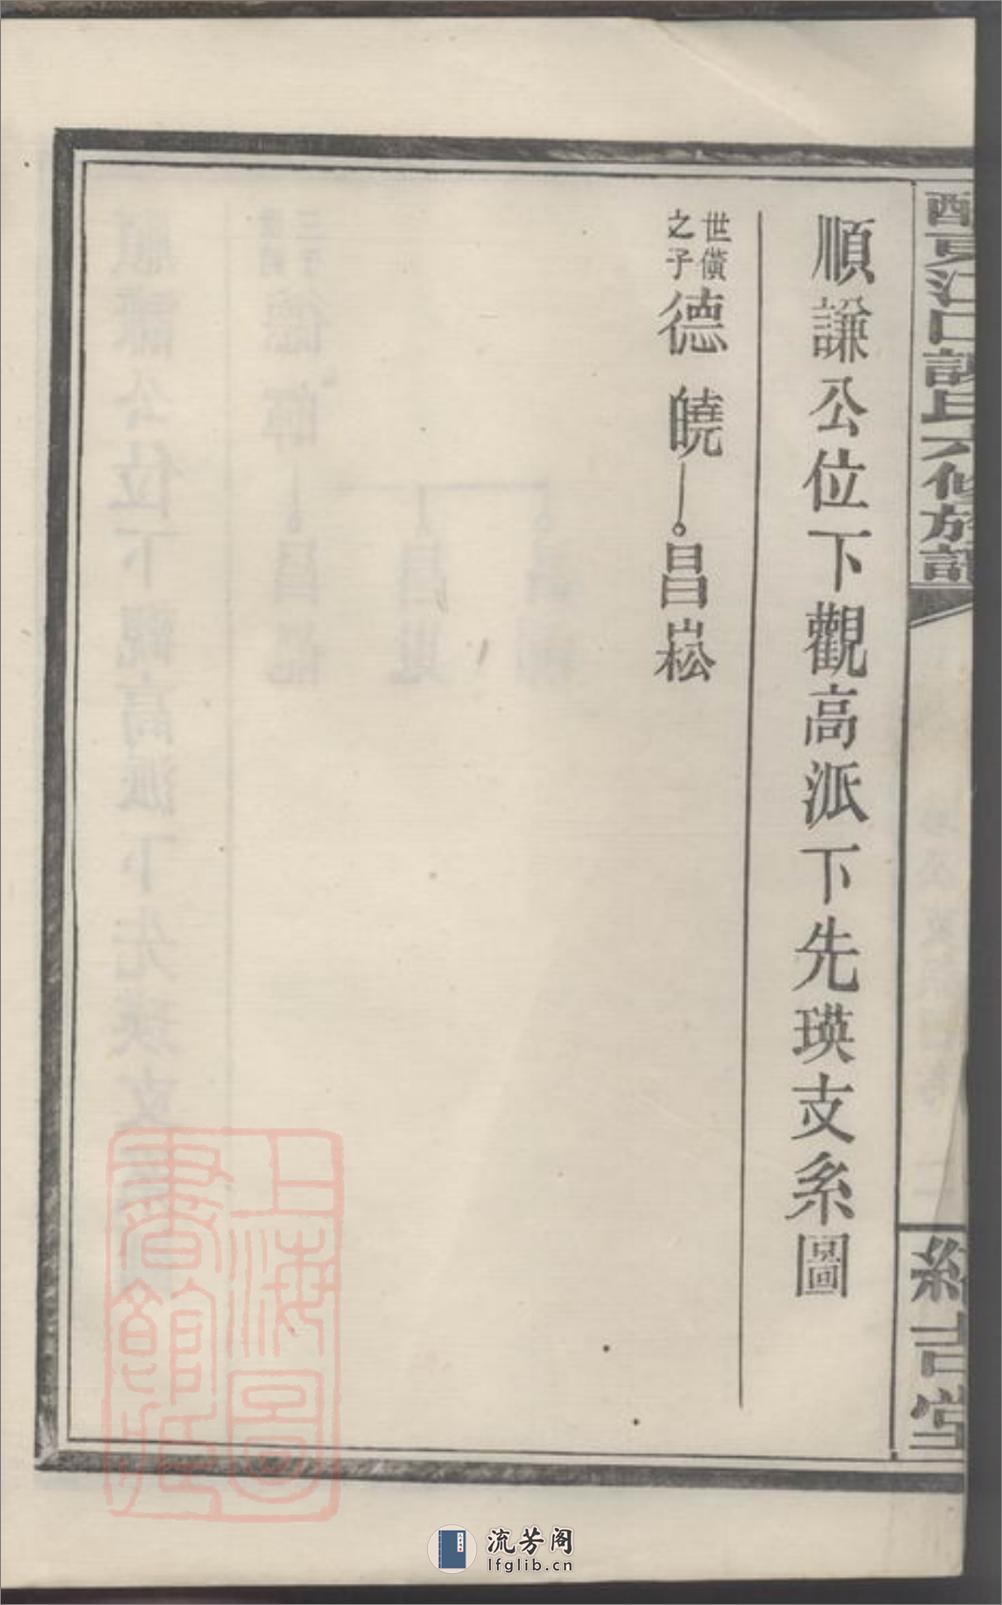 酉夏江口謝氏六修族譜
紹吉堂
順謙公位下觀高派下先瑛支系圖
世儣
之子
德皢
昌崧
上海圖書館藏
流芳阁
lfglib.cn